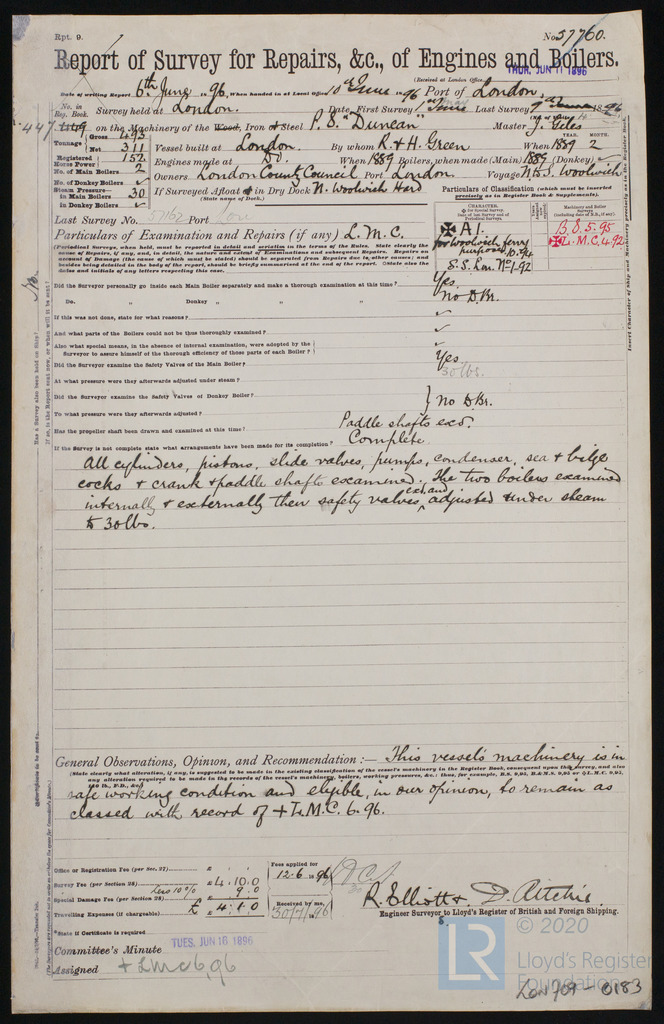 Rpt. 9.
No. 57760.
Report of Survey for Repairs, &c., of Engines and Boilers.
(Received at London Office
THUR. JUN 11 1896
Date of writing Report 6th June 1896. When handed in at Local Office 10th June 1896 Port of London.
No. in Reg. Book. Survey held at London. Date, First Survey Last Survey 9th June 1896
447 on the Machinery of the Wood, Iron or Steel P. S. "Duncan" Master J. Giles
Tonnage Gross 493 Net 311 Vessel built at London. By whom R. & H. Green When 1889 2
YEAR. MONTH.
Registered Horse Power 152 Engines made at Do. When 1889 Boilers, when made (Main) 1889 (Donkey) ✓
No. of Main Boilers 2 Owners London County Council Port London. Voyage N. & S. Woolwich
No. of Donkey Boilers ✓
Steam Pressure— in Main Boilers 30 If Surveyed Afloat or in Dry Dock N. Woolwich Hard
in Donkey Boilers ✓ (State name of Dock.)
Particulars of Classification (which must be inserted precisely as in Register Book & Supplements).
Last Survey No. 57162 Port Lon
CHARACTER.
Machinery and Boiler Surveys
✠ A1.
for Woolwich ferry purposes 10.94
S.S. Lon. No1-92
B.S. 5.95
✠ L.M.C. 4.92
Particulars of Examination and Repairs (if any) L.M.C.
(Periodical Surveys, when held, must be reported in detail and seriatim in the terms of the Rules. State clearly the cause of Repairs, if any, and, in detail, the nature and extent of Examinations and subsequent Repairs. Repairs on account of Damage (the cause of which must be stated) should be separated from Repairs due to other causes; and besides being detailed in the body of the report, should be briefly summarised at the end of the report. State also the dates and initials of any letters respecting this case.
Did the Surveyor personally go inside each Main Boiler separately and make a thorough examination at this time? Yes.
Do. „ Donkey „ „ „ No D Br.
If this was not done, state for what reasons? ✓
And what parts of the Boilers could not be thus thoroughly examined? ✓
Also what special means, in the absence of internal examination, were adopted by the
Surveyor to assure himself of the thorough efficiency of those parts of each Boiler? ✓
Did the Surveyor examine the Safety Valves of the Main Boiler? Yes
At what pressure were they afterwards adjusted under steam? 30 lbs.
Did the Surveyor examine the Safety Valves of Donkey Boiler? } No D Br.
To what pressure were they afterwards adjusted?
Has the propeller shaft been drawn and examined at this time? Paddle shafts exd.
If the Survey is not complete state what arrangements have been made for its completion? Complete.
All cylinders, pistons, slide valves, pumps, condenser, sea & bilge
cocks & crank & paddle shafts examined. The two boilers examined
internally & externally their safety valves exd. and adjusted under steam
to 30 lbs.
General Observations, Opinion, and Recommendation :— This vessel's machinery is in
(State clearly what alteration, if any, is suggested to be made in the existing classification of the vessel's machinery in the Register Book, consequent upon this survey, and also
any alteration required to be made in the records of the vessel's machinery, boilers, working pressures, &c.
safe working condition and eligible, in our opinion, to remain as
classed with record of + L.M.C. 6.96.
Office or Registration Fee (per Sec. 27) £ : :
Survey Fee (per Section 28) £4 : 10 : 0
Less 10% 9 : 0
Special Damage Fee (per Section 28)
Travelling Expenses (if chargeable) £ 4 : 1 : 0
Fees applied for
12.6.1896
Received by me,
30/7/1896
State if Certificate is required
R. Elliott & D. Ritchie
Engineer Surveyor to Lloyd's Register of British and Foreign Shipping.
Committee's Minute TUES. JUN 16 1896
Assigned + LMC 6,96
© 2020
LR
Lloyd's Register
Foundation
LON 709 - 0183